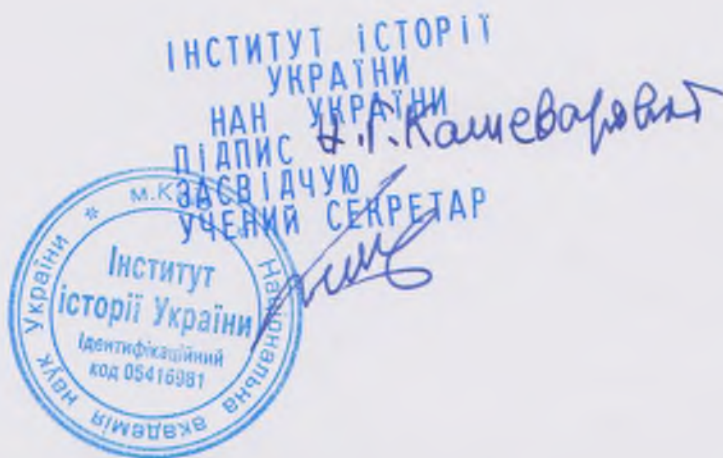 ІНСТИТУТ ІСТОРІЇ
УКРАЇНИ
НАН УКРАЇНИ
ПІДПИС Н.Г. Кашеварової
ЗАСВІДЧУЮ
УЧЕНИЙ СЕКРЕТАР
Національна академія наук України * м.Київ *
Інститут
історії України
Ідентифікаційний
код 05416981